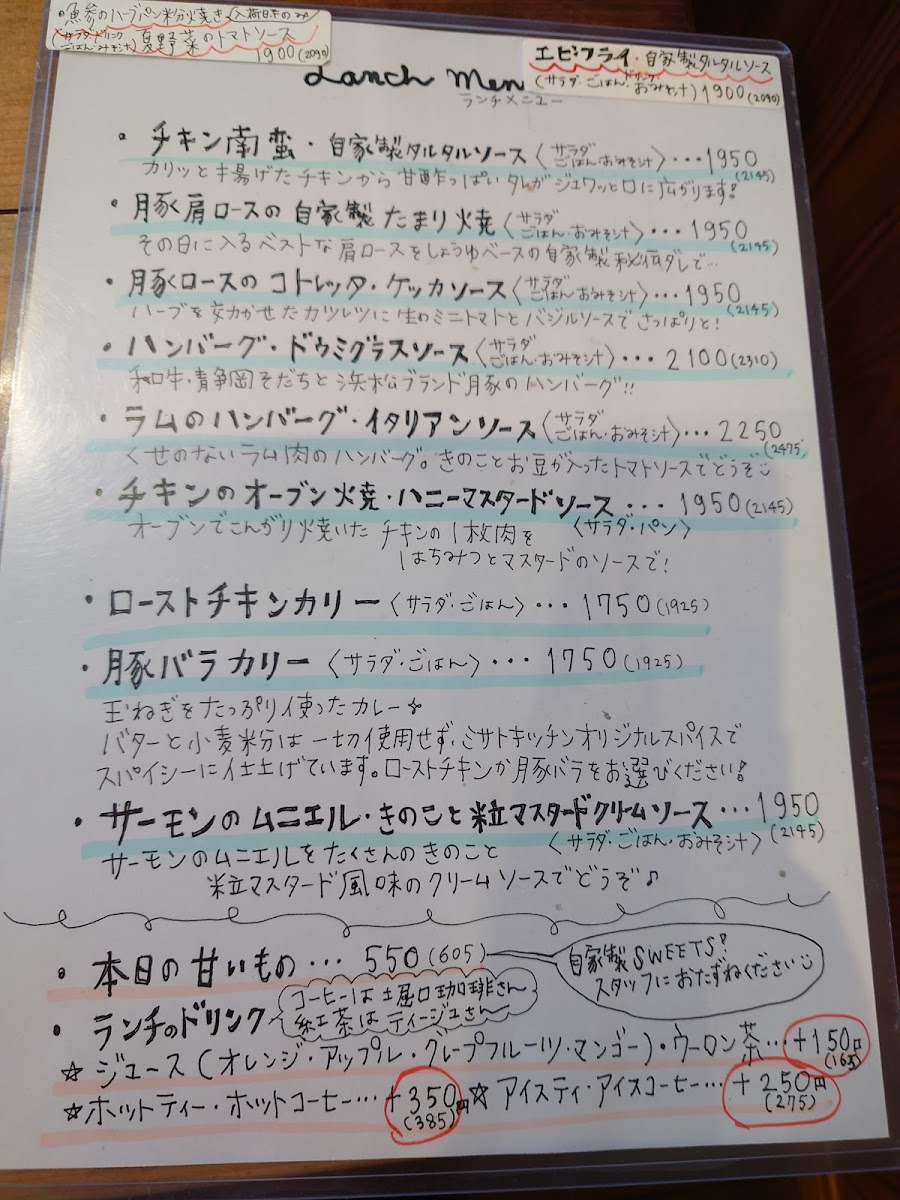 魚参のハーブパン粉焼き(入荷日本のみ
(サラダ・ドリンク
ごはん・みそ汁) 夏野菜のトマトソース
1900(2090)
エビフライ・自家製タルタルソース
(サラダ・ごはん・ドリンク・おみそ汁) 1900(2090)
Lanch Men
ランチメニュー
・チキン南蛮・自家製タルタルソース〈サラダ ごはん・おみそ汁〉・・・1950
(2145)
カリッと揚げたチキンから甘酢っぱいタレがジュワッと口に広がります!
・月豚肩ロースの自家製たまり焼〈サラダ ごはん・おみそ汁〉・・・1950
(2145)
その日に入るベストな肩ロースをしょうゆベースの自家製秘伝ダレで…
・月豚ロースのコトレッタ・ケッカソース〈サラダ ごはん・おみそ汁〉・・・1950
(2145)
ハーブを効かせたカツレツに生のミニトマトとバジルソースでさっぱりと!
・ハンバーグ・ドゥミグラスソース〈サラダ ごはん・おみそ汁〉・・・2100(2310)
和牛・静岡そだちと浜松ブランド月豚のハンバーグ!!
・ラムのハンバーグ・イタリアンソース〈サラダ ごはん・おみそ汁〉・・・2250
(2475)
くせのないラム肉のハンバーグ。きのことお豆が入ったトマトソースでどうぞ
・チキンのオーブン焼・ハニーマスタードソース・・・1950(2145)
〈サラダ・パン〉
オーブンでこんがり焼いたチキンの1枚肉を
はちみつとマスタードのソースで!
・ローストチキンカリー〈サラダ・ごはん〉・・・1750(1925)
・月豚バラカリー〈サラダ・ごはん〉・・・1750(1925)
玉ねぎをたっぷり使ったカレー☆
バターと小麦粉は一切使用せず、ミサトキッチンオリジナルスパイスで
スパイシーに仕上げています。ローストチキンか月豚バラをお選びください!
・サーモンのムニエル・きのこと粒マスタードクリームソース・・・1950
(2145)
〈サラダ・ごはん・おみそ汁〉
サーモンのムニエルをたくさんのきのこと
粒マスタード風味のクリームソースでどうぞ♪
・本日の甘いもの・・・550(605)
自家製SWEETS!
スタッフにおたずねください
・ランチのドリンク
コーヒーは土堀口珈琲さん
紅茶はティージュさん
☆ジュース(オレンジ・アップル・グレープフルーツ・マンゴー)・ウーロン茶…+150円
(165)
☆ホットティー・ホットコーヒー…+350円
(385)
☆アイスティ・アイスコーヒー…+250円
(275)